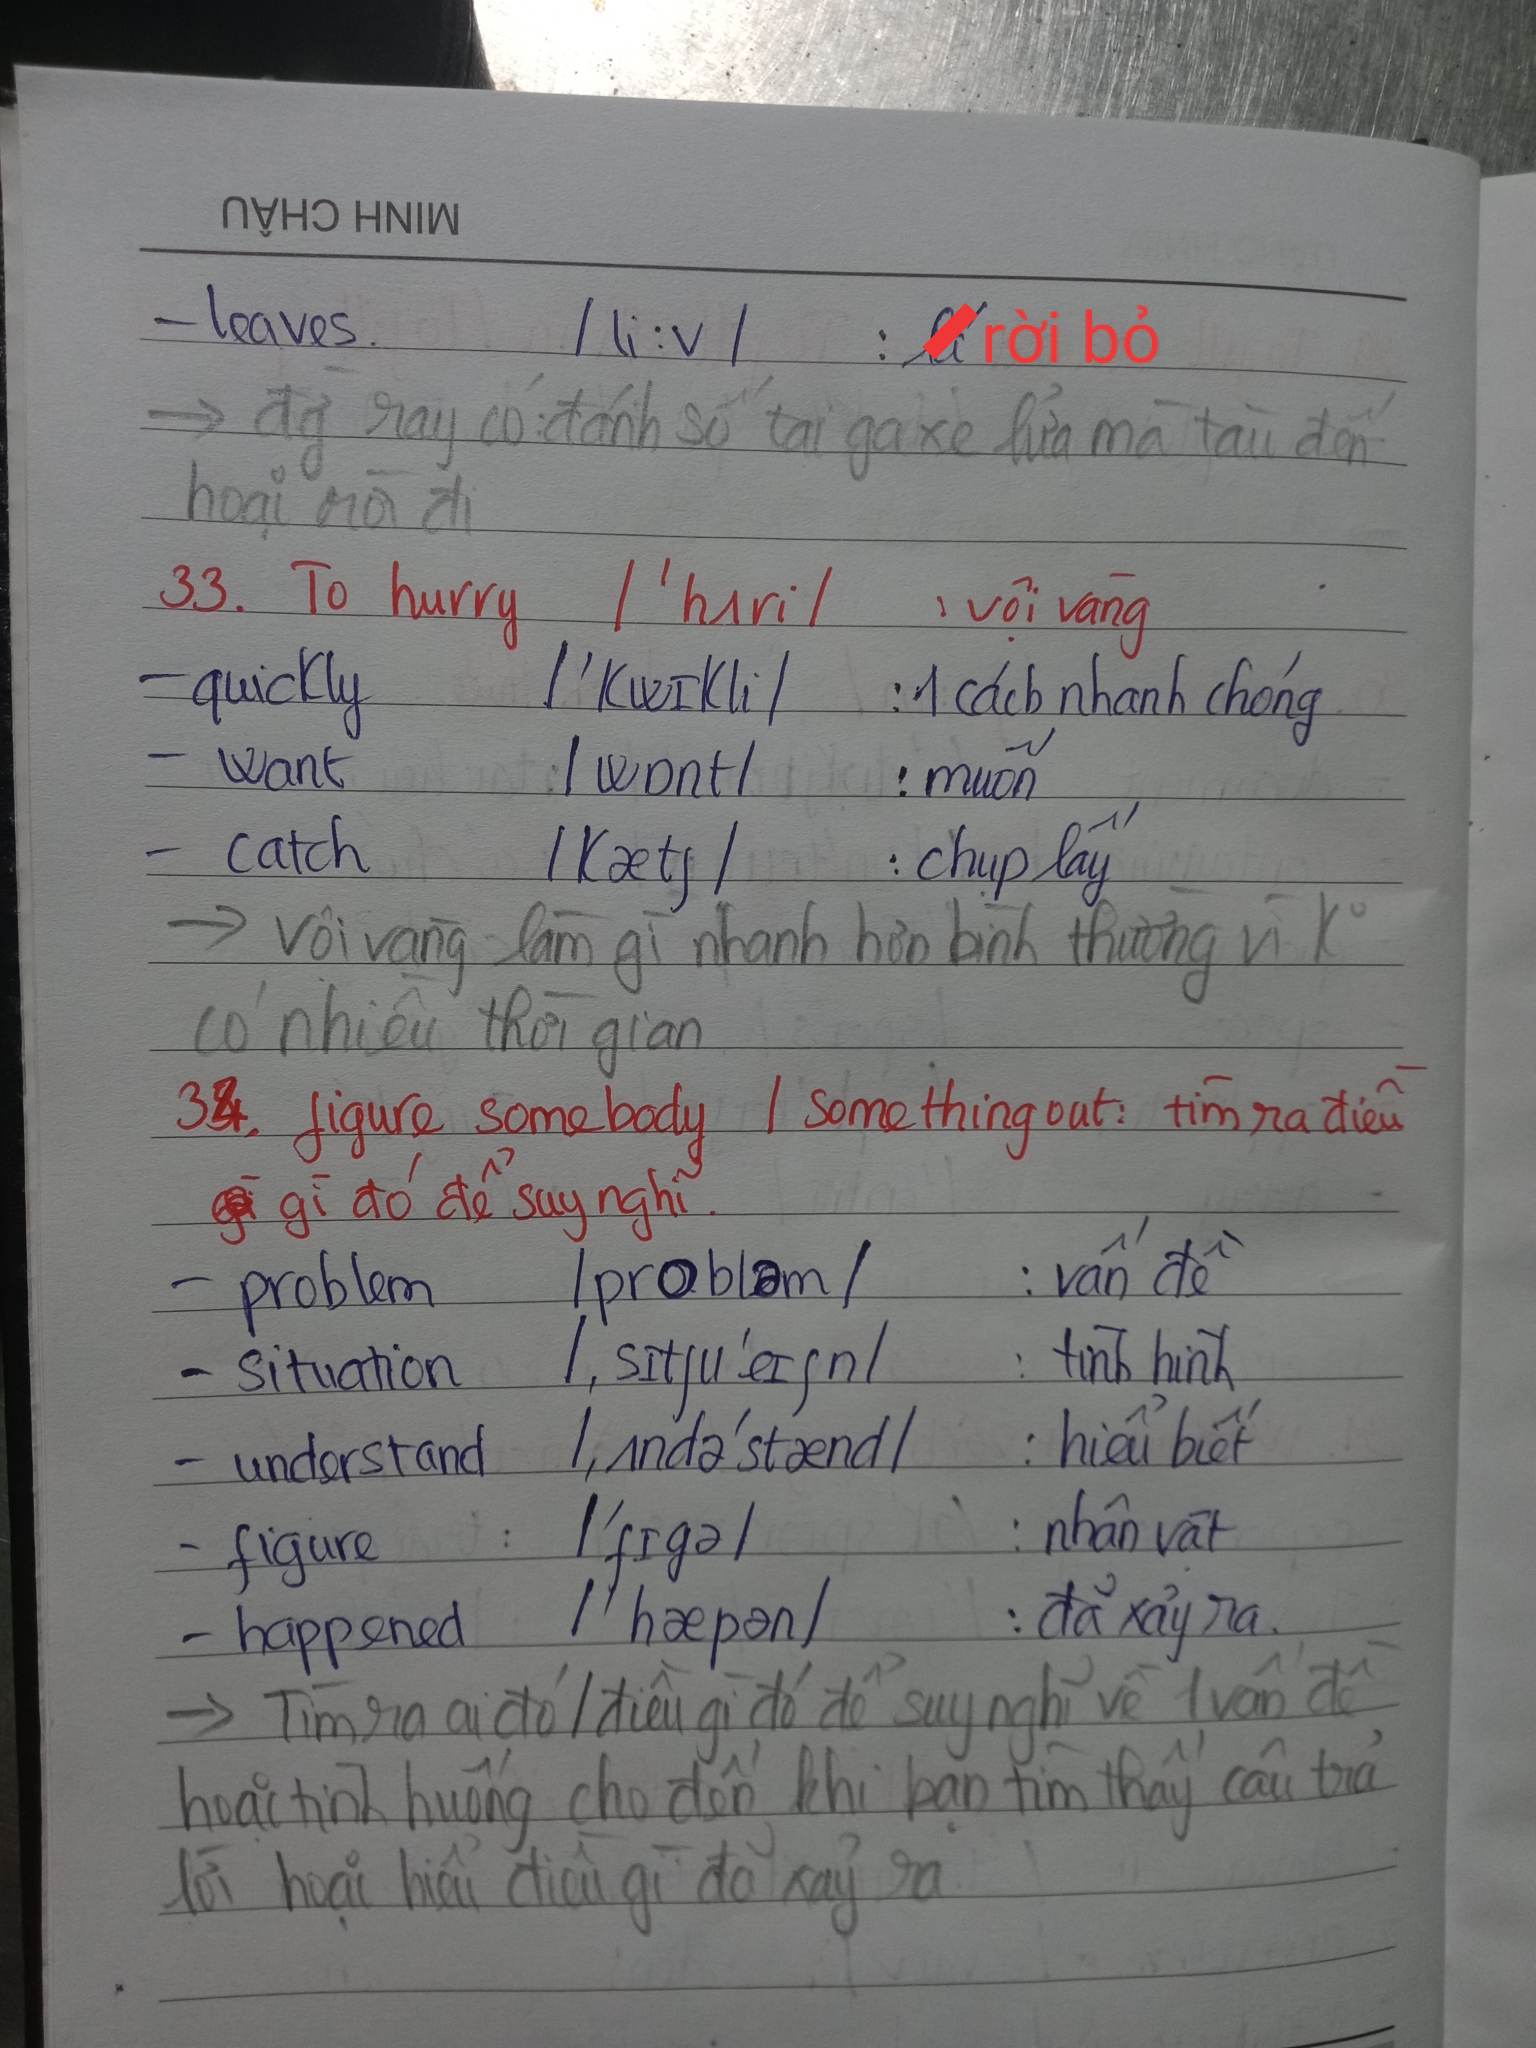 MINH CHÂU
- leaves. /li:v/ : lá rời bỏ
→ đg ray có đánh số tại ga xe lửa mà tàu đến
hoặc rời đi
33. To hurry /'hʌri/ : vội vàng
- quickly /'kwɪkli/ : 1 cách nhanh chóng
- want /wɒnt/ : muốn
- catch /kætʃ/ : chụp lấy
→ vội vàng làm gì nhanh hơn bình thường vì k°
có nhiều thời gian
34. figure somebody / something out: tìm ra điều
gì đó để suy nghĩ.
- problem /prɒbləm/ : vấn đề
- situation /ˌsɪtʃu'eɪʃn/ : tình hình
- understand /ˌʌndə'stænd/ : hiểu biết
- figure : /'fɪgə/ : nhân vật
- happened /'hæpən/ : đã xảy ra.
→ Tìm ra ai đó / điều gì đó để suy nghĩ về 1 vấn đề
hoặc tình huống cho đến khi bạn tìm thấy câu trả
lời hoặc hiểu điều gì đã xảy ra